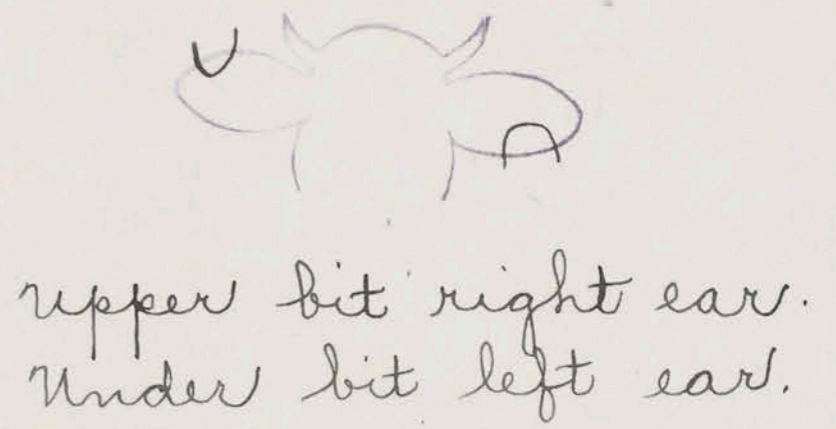 Upper bit right ear.
Under bit left ear.